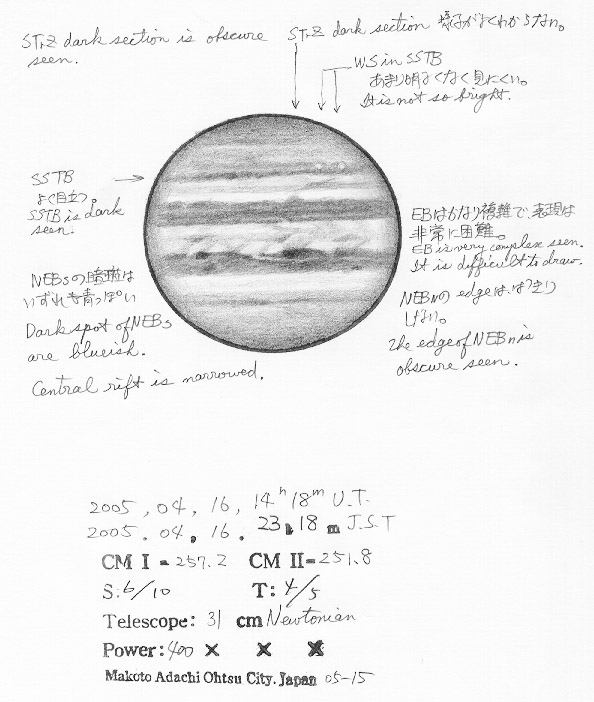 STrZ dark section is obscure
seen.
STrZ dark section 様子がよくわからない。
WS in SSTB
あまり明るくなく見にくい。
It is not so bright.
SSTB
よく目立つ。
SSTB is dark
seen.
EBはかなり複雑で、表現は
非常に困難。
EB is very complex seen.
It is difficult to draw.
NEBsの暗斑は
いずれも青っぽい
Dark spot of NEBs
are blueish.
NEBnのedgeは、はっきり
しない。
The edge of NEBn is
obscure seen.
Central rift is narrowed.
2005, 04, 16, 14h 18m U.T.
2005. 04. 16. 23h 18m J.S.T
CM I = 257.2 CM II= 251.8
S: 6/10 T: 4/5
Telescope: 31 cm Newtonian
Power: 400 × × ×
Makoto Adachi Ohtsu City. Japan 05-15